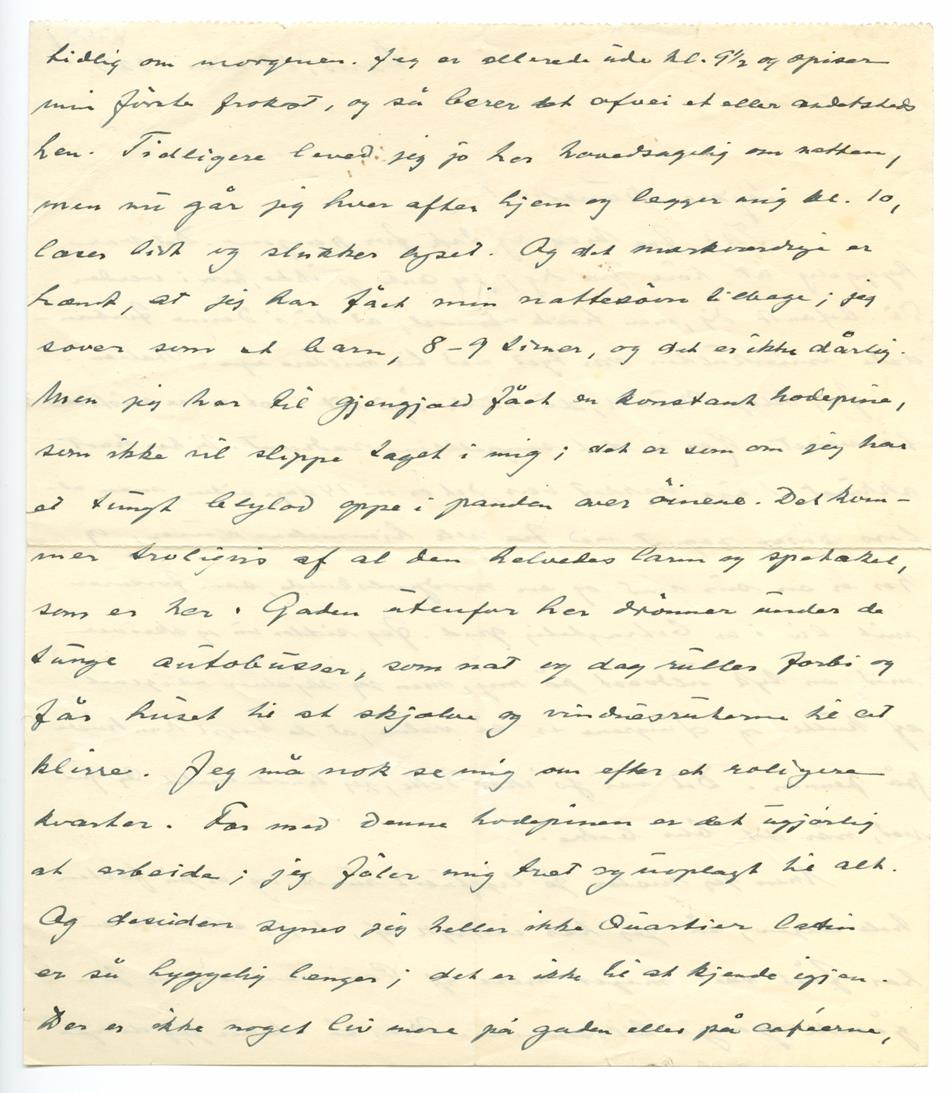 tidlig om morgenen. Jeg er allerede ude kl. 9½ og spiser
min förste frokost, og så bærer det afvei et eller andetsteds
hen. Tidligere leved jeg jo her hovedsagelig om natten,
men nu går jeg hver aften hjem og lægger mig kl. 10,
læser lidt og slukker lyset. Og det mærkværdige er
hændt, at jeg har fået min nattesövn tilbage; jeg
sover som et barn, 8-9 timer, og det er ikke dårlig.
Men jeg har til gjengjæld fået en konstant hodepine,
som ikke vil slippe taget i mig; det er som om jeg har
et tungt blylod oppe i panden over öinene. Det kom-
mer troligvis af al den helvedes larm og spetakel,
som er her. Gaden utenfor her drönner under de
tunge autobusser, som nat og dag ruller forbi og
får huset til at skjælve og vinduesruterne til at
klirre. Jeg må nok se mig om efter et roligere
kvarter. For med denne hodepinen er det ugjörlig
at arbeide; jeg föler mig træt og uoplagt til alt.
Og desuden synes jeg heller ikke Quartier latin
er så hyggelig længer; det er ikke til at kjende igjen.
Der er ikke noget liv mere på gaden eller på caféerne,